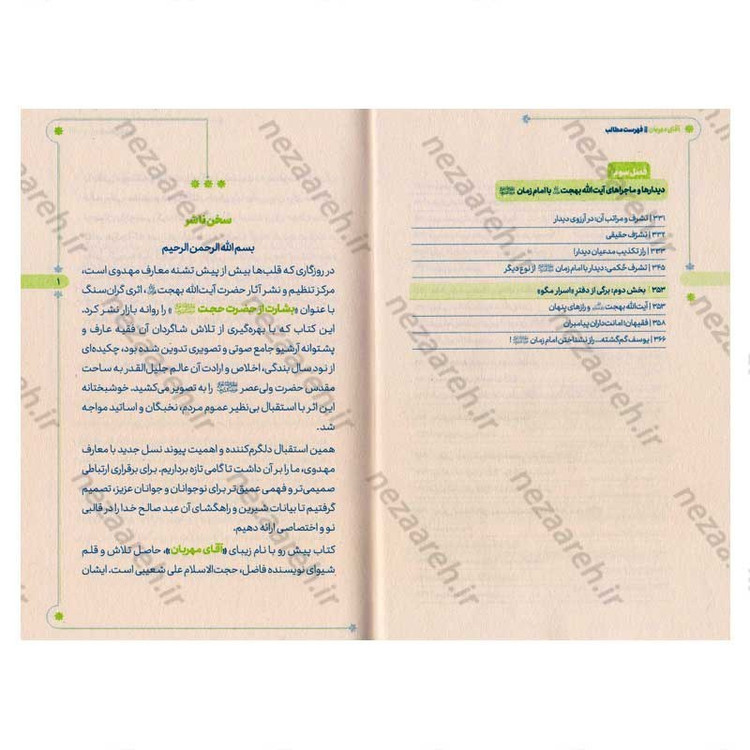 آقای مهربان || فهرست مطالب
فصل سوم:
دیدارها و ماجراهای آیت‌الله بهجت با امام زمان
۳۳۱ | تشرف و مراتب آن: در آرزوی دیدار
۳۳۲ | تشرّف حقیقی
۳۳۳ | راز تکذیب مدعیان دیدار!
۳۴۵ | تشرف حُکمی: دیدار با امام زمان از نوع دیگر
۳۵۳ | بخش دوم: برگی از دفتر «اسرار مگو»
۳۵۳ | آیت‌الله بهجت و رازهای پنهان
۳۵۸ | فقیهان؛ امانت‌داران پیامبران
۳۶۶ | یوسف گم‌گشته... راز نشناختن امام زمان !
سخن ناشر
بسم الله الرحمن الرحیم
در روزگاری که قلب‌ها بیش از پیش تشنه معارف مهدوی است،
مرکز تنظیم و نشر آثار حضرت آیت‌الله بهجت ، اثری گران‌سنگ
با عنوان «بشارت از حضرت حجت » را روانه بازار نشر کرد.
این کتاب که با بهره‌گیری از تلاش شاگردان آن فقیه عارف و
پشتوانه آرشیو جامع صوتی و تصویری تدوین شده بود، چکیده‌ای
از نود سال بندگی، اخلاص و ارادت آن عالم جلیل‌القدر به ساحت
مقدس حضرت ولی‌عصر را به تصویر می‌کشید. خوشبختانه
این اثر با استقبال بی‌نظیر عموم مردم، نخبگان و اساتید مواجه
شد.
همین استقبال دلگرم‌کننده و اهمیت پیوند نسل جدید با معارف
مهدوی، ما را بر آن داشت تا گامی تازه برداریم. برای برقراری ارتباطی
صمیمی‌تر و فهمی عمیق‌تر برای نوجوانان و جوانان عزیز، تصمیم
گرفتیم تا بیانات شیرین و راهگشای آن عبد صالح خدا را در قالبی
نو و اختصاصی ارائه دهیم.
کتاب پیش رو با نام زیبای «آقای مهربان»، حاصل تلاش و قلم
شیوای نویسنده فاضل، حجت‌الاسلام علی شعیبی است. ایشان
۱
nezaareh.ir
nezaareh.ir
nezaareh.ir
nezaareh.ir
nezaareh.ir
nezaareh.ir